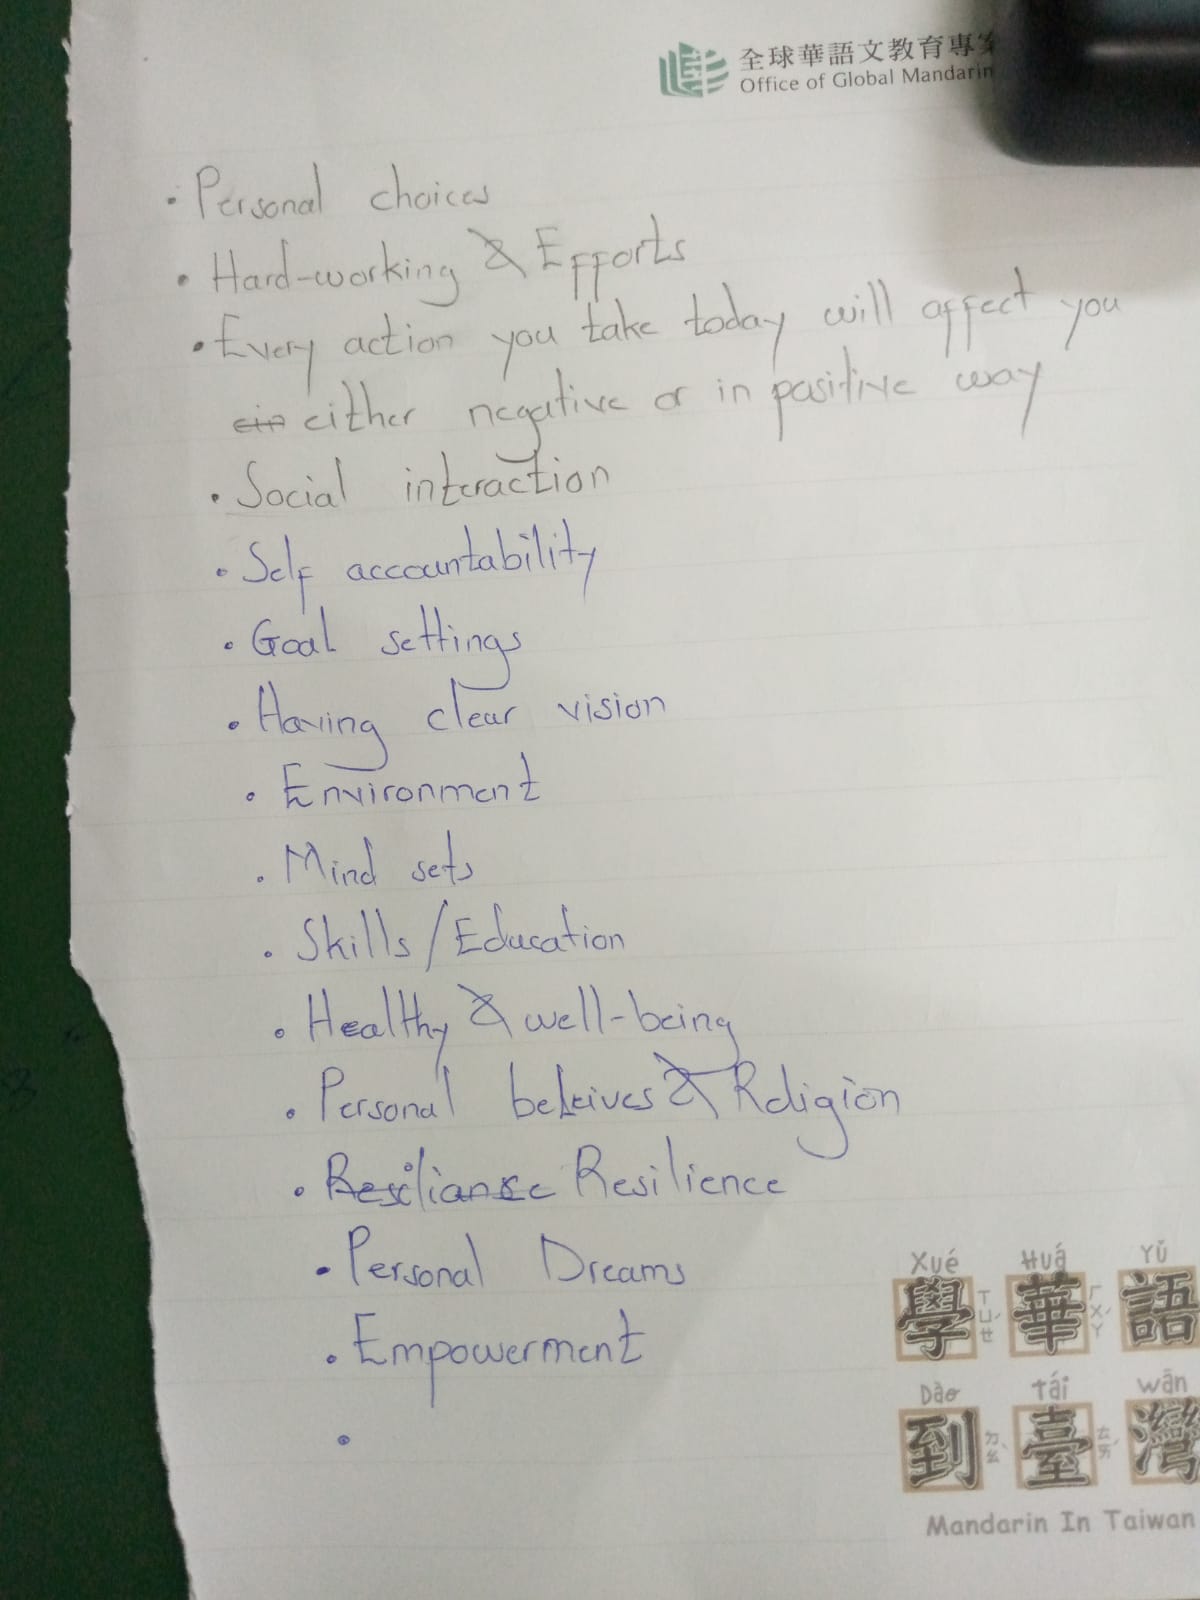 全球華語文教育專案
Office of Global Mandarin
• Personal choices
• Hard-working & Efforts
• Every action you take today will affect you
either negative or in positive way
• Social interaction
• Self accountability
• Goal settings
• Having clear vision
• Environment
• Mind sets
• Skills/Education
• Healthy & well-being
• Personal beleives & Religion
• Resilience
• Personal Dreams
• Empowerment
•
Xué Huá Yǔ
學 ㄒㄩㄝˊ 華 ㄏㄨㄚˊ 語
Dào tái wān
到 ㄉㄠˋ 臺 ㄊㄞˊ 灣
Mandarin In Taiwan